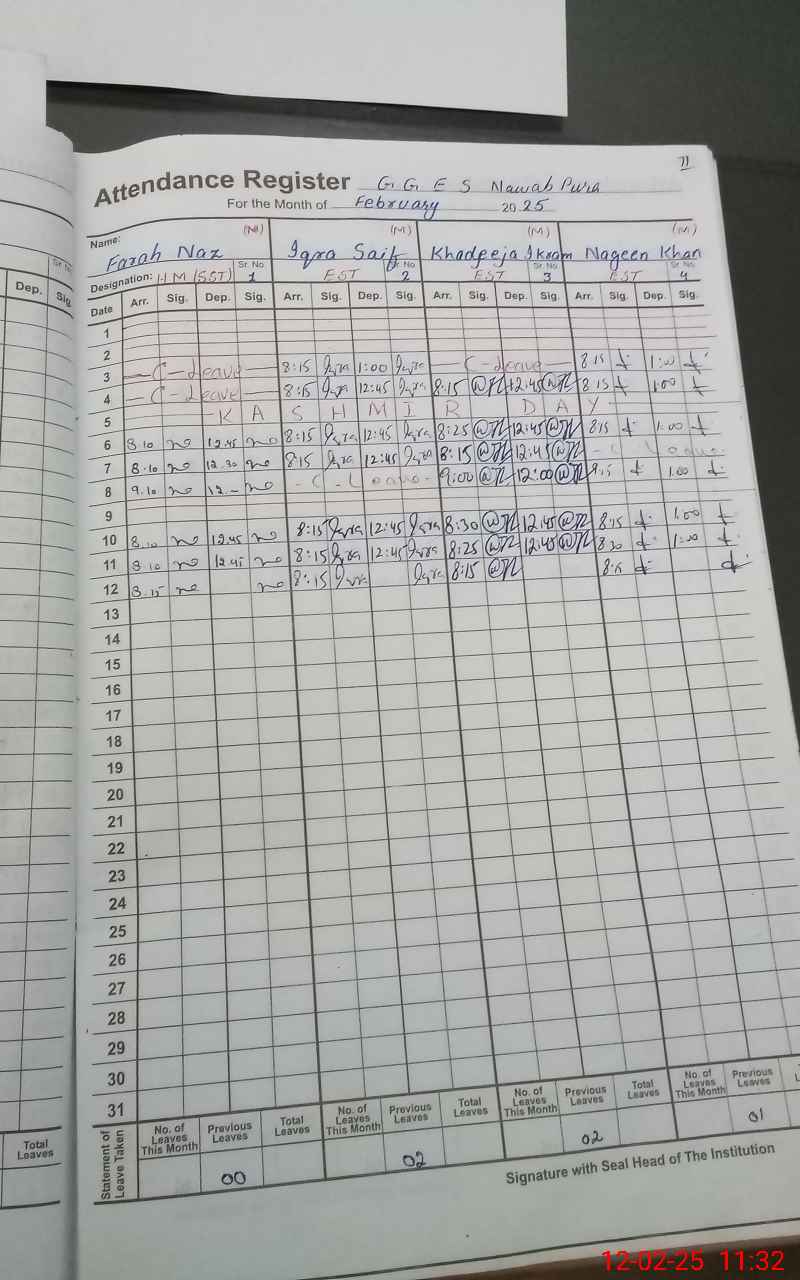 71
Attendance Register G. G. E S Nawab Pura
For the Month of February 2025
Name: Farah Naz (M) Iqra Saif (M) Khadeeja Ikram (M) Nageen Khan (M)
Designation: H M (SST) Sr. No. 1 EST Sr. No. 2 EST Sr. No. 3 EST Sr. No. 4
Date Arr. Sig. Dep. Sig. Arr. Sig. Dep. Sig. Arr. Sig. Dep. Sig. Arr. Sig. Dep. Sig.
1
2
3 - C - Leave - 8:15 Iqra 1:00 Iqra - C - Leave - 8:15 1:00
4 - C - Leave - 8:15 Iqra 12:45 Iqra 8:15 12:45 8:15 1:00
5 - K A S H M I R D A Y
6 8.10 12.45 8:15 Iqra 12:45 Iqra 8:25 12:45 8:15 1:00
7 8.10 12.30 8:15 Iqra 12:45 Iqra 8:15 12:45 - C Leave -
8 9.10 12.- - C - Leave - 9:00 12:00 1.00
9
10 8.10 12.45 8:15 Iqra 12:45 Iqra 8:30 12:45 8:15 1:00
11 8.10 12.45 8:15 Iqra 12:45 Iqra 8:25 12:45 8:30 1:00
12 8.15 8:15 Iqra Iqra 8:15 8:15
13
14
15
16
17
18
19
20
21
22
23
24
25
26
27
28
29
30
31
Statement of Leave Taken
No. of Leaves This Month Previous Leaves Total Leaves No. of Leaves This Month Previous Leaves Total Leaves No. of Leaves This Month Previous Leaves Total Leaves No. of Leaves This Month Previous Leaves
00 02 02 01
Signature with Seal Head of The Institution
Dep. Sig.
Total Leaves
12-02-25 11:32